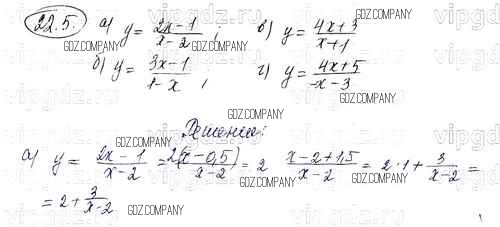 22.5. а) y = \frac{2x-1}{x-2} ; в) y = \frac{4x+3}{x+1}
б) y = \frac{3x-1}{1-x} , г) y = \frac{4x+5}{-x-3}
Решение:
а) y = \frac{2x-1}{x-2} = \frac{2(x-0,5)}{x-2} = 2 \frac{x-2+1,5}{x-2} = 2·1 + \frac{3}{x-2} =
= 2 + \frac{3}{x-2}
GDZ.COMPANY
vipgdz.ru